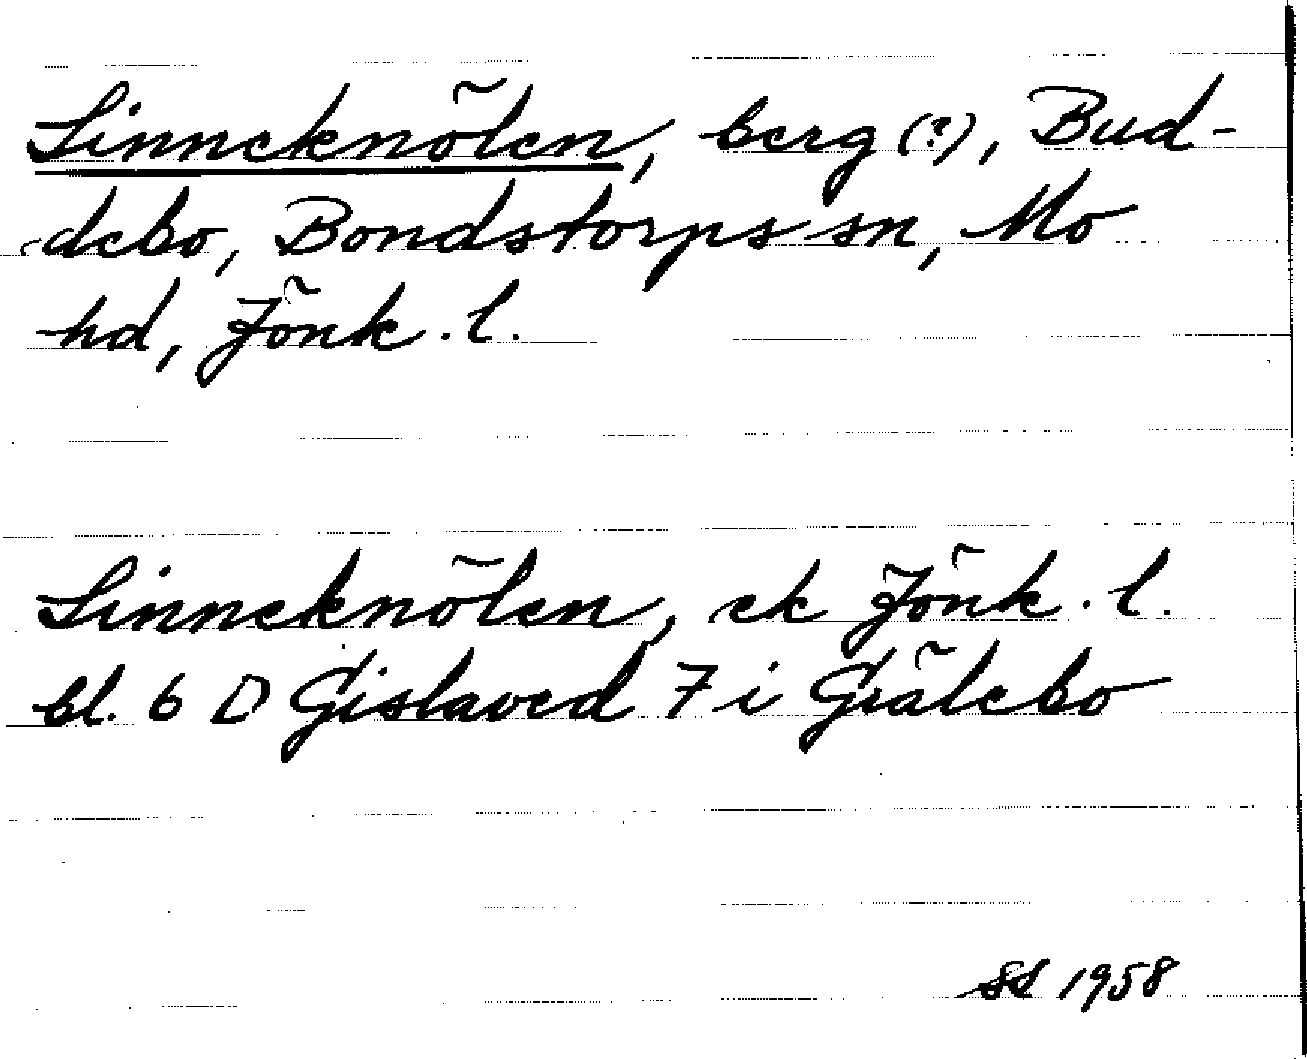 Linneknölen, berg (?), Bud-
debo, Bondstorps sn, Mo
hd, Jönk. l.
Linneknölen, ek Jönk. l.
bl. 6 D Gislaved 7 i Grälebo
SS 1958